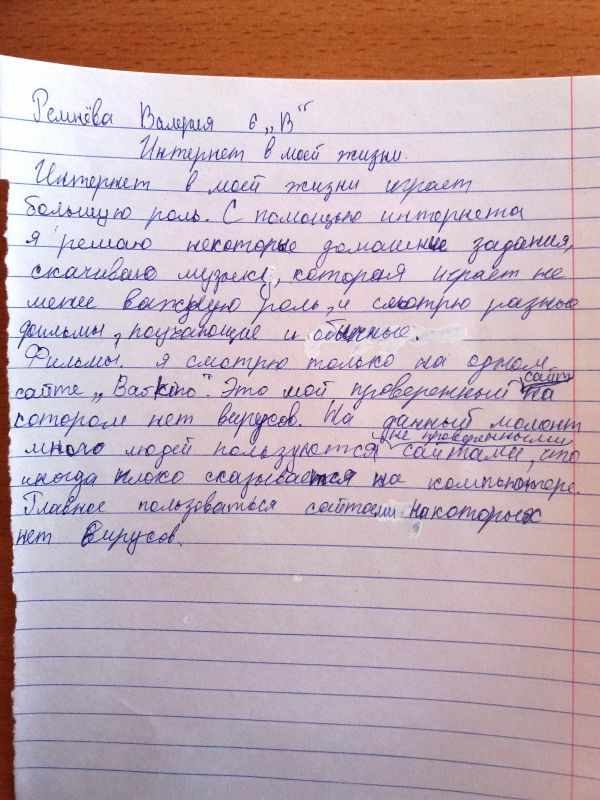 Ремнёва Валерия 6 „В“
Интернет в моей жизни.
Интернет в моей жизни играет
большую роль. С помощью интернета
я решаю некоторые домашние задания,
скачиваю музыку, которая играет не
менее важную роль, и смотрю разные
фильмы, поучающие и обычные.
Фильмы. я смотрю только на одном
сайте „Baskino“. Это мой проверенный сайт на
котором нет вирусов. На данный момент
много людей пользуются не проверенными сайтами, что
иногда плохо сказывается на компьютере.
Главное пользоваться сайтами на которых
нет вирусов.